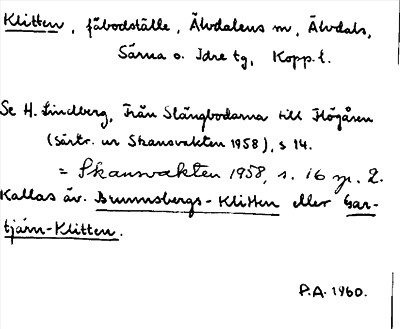 Klitten, fäbodställe, Älvdalens sn, Älvdals,
Särna o. Idre tg, Kopp. l.
Se H. Lindberg, Från Slängbodarna till Högåsen
(särtr. ur Skansvakten 1958), s 14.
= Skansvakten 1958, s. 16
Kallas äv. Brunnsbergs-Klitten eller Gar-
tjärn-Klitten.
P.A. 1960.